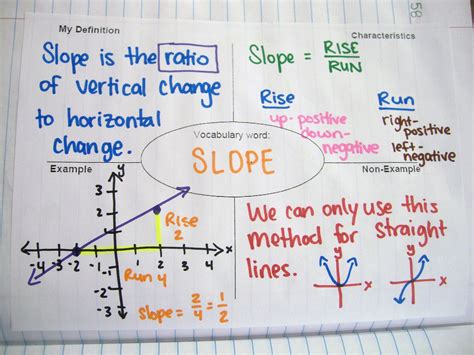 My Definition
Slope is the ratio
of vertical change
to horizontal
change.
Characteristics
Slope = RISE
RUN
Rise
up-positive
down-
negative
Run
right-
positive
left-
negative
Vocabulary word:
SLOPE
Example
y
3
2
1
-4 -3 -2 -1 1 2 3 4 x
-1
-2
-3
Rise
2
Run 4
Slope = 2/4 = 1/2
Non-Example
We can only use this
method for straight
lines.
y
x
y
x
58